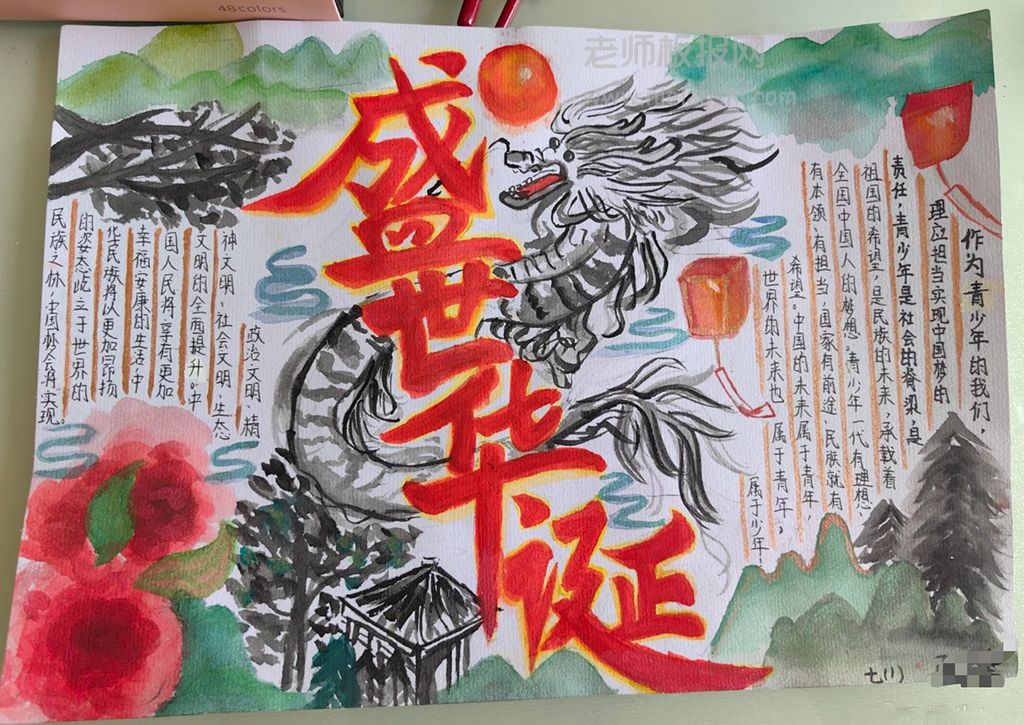 48colors
老师板报网
盛世华诞
作为青少年的我们，
理应担当实现中国梦的
责任，青少年是社会的脊梁，是
祖国的希望，是民族的未来，承载着
全国中国人的梦想。青少年一代有理想、
有本领、有担当，国家有前途，民族就有
希望。中国的未来属于青年，
世界的未来也属于青年。
属于少年
政治文明、精
神文明、社会文明、生态
文明的全面提升。中
国人民将享有更加
幸福安康的生活，中
华民族将以更加昂扬
的姿态屹立于世界的
民族之林，中国梦会将实现。
七(1)